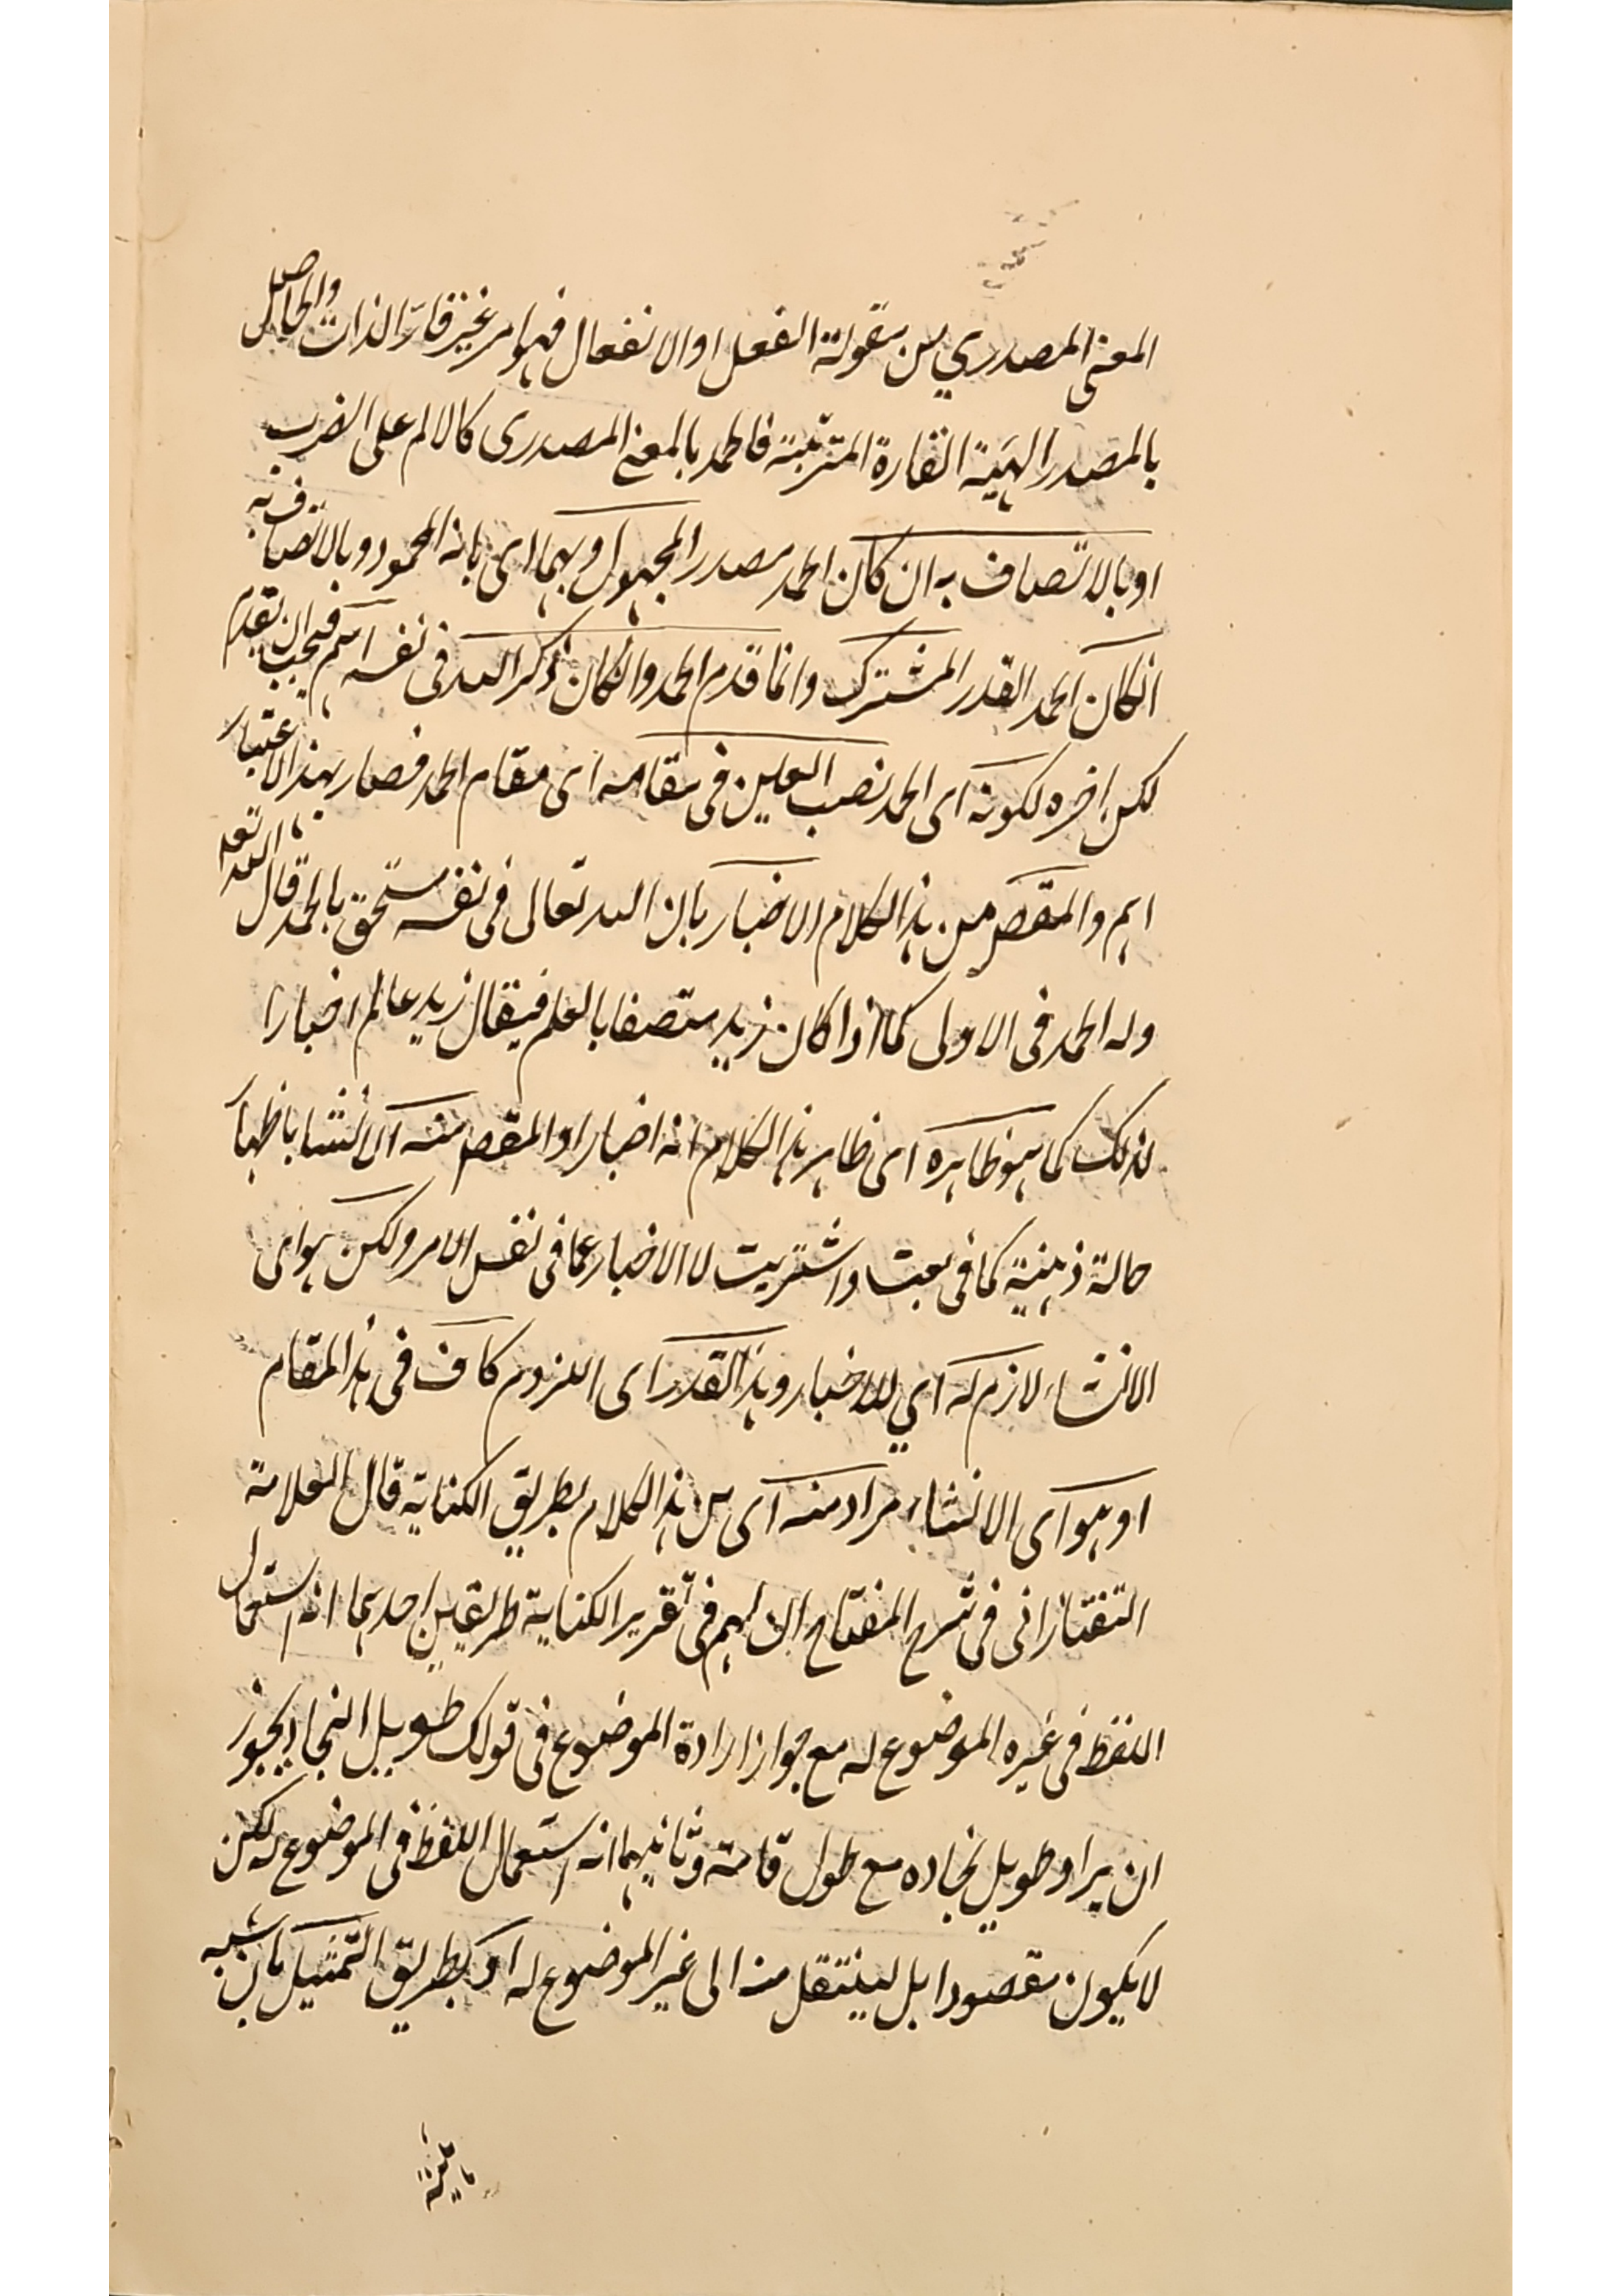 المعنى المصدري من مقولة الفعل او الانفعال فهو امر غير قار الذات والحاصل
بالمصدر الهيئة القارة المترتبة فالحمد بالمعنى المصدرى كالالم على الضرب
او بالاتصاف به ان كان الحمد مصدر المجهول او بهما اى بانه المحمود وبالاتصاف به
انكان الحمد القدر المشترك وانما قدم الحمد وانكان ذكر الله فى نفسه اهم فيجب ان يقدم
لكن اخره لكونه اى الحمد نصب العين فى مقامه اى مقام الحمد فصار بهذا الاعتبار
اهم والمقصم من هذا الكلام الاخبار بان الله تعالى فى نفسه مستحق بالحمد قال الله تعه
وله الحمد فى الاولى كما اذا كان زيد متصفا بالعلم فيقال زيد عالم اخبارا
لذلك كما هو ظاهره اى ظاهر هذا الكلام انه اخبار او المقصم منه الانشا باظهار
حالة ذهنية كما فى بعت واشتريت لا الاخبار عما فى نفس الامر ولكن هو اى
الانشاء لازم له اي للاخبار وهذا القدر اى اللزوم كاف فى هذا المقام
او هو اى الانشاء مراد منه اى من هذا الكلام بطريق الكناية قال العلامة
التفتازانى فى شرح المفتاح ان لهم فى تقرير الكناية طريقين احديهما انه استعمال
اللفظ فى غيره الموضوع له مع جواز ارادة الموضوع فى قولك طويل النجاد يجوز
ان يراد طويل نجاده مع طول قامته وثانيهما انه استعمال اللفظ فى الموضوع له لكن
لا يكون مقصودا بل لينتقل منه الى غير الموضوع له او بطريق التمثيل بان شبه